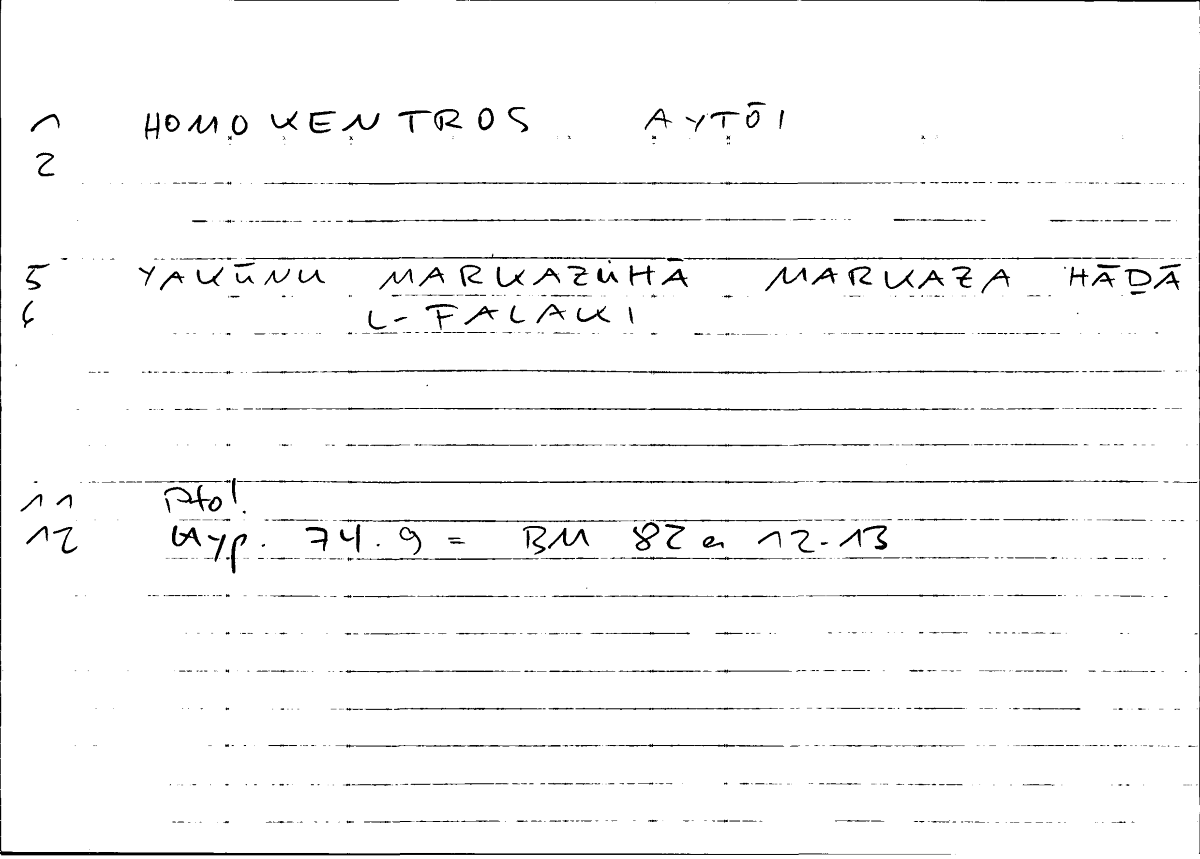 1 HOMOKENTROS AYTŌI
2
5 YAKŪNU MARKAZUHĀ MARKAZA HĀḎĀ
6 L-FALAKI
11 Ptol.
12 Hyp. 74.9 = BM 82a 12-13